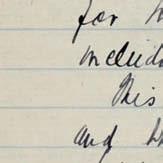 for
includ
This
and